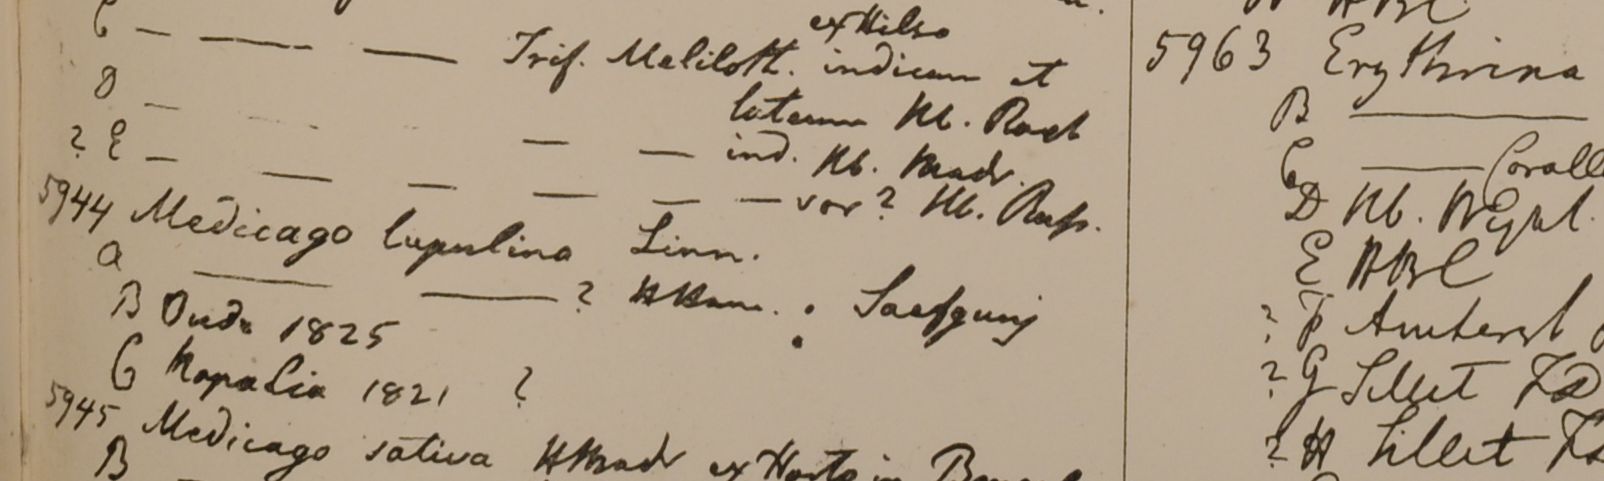 C — — — Trif. Melilott. indicum et
ex Hilso
D — luteum Hb. Roxb
? E — — — — ind. Hb. Madr.
— — — — — var? Hb.
5944 Medicago lupulina Linn.
a — — ? HHam.
B Oude 1825
C Napalia 1821 ?
5945 Medicago sativa HMadr ex Horto in
B
5963 Erythrina
B —
C — Corall
D Hb. Wight
E HBC
? F Amherst
? G Sillet FD
? H Sillet